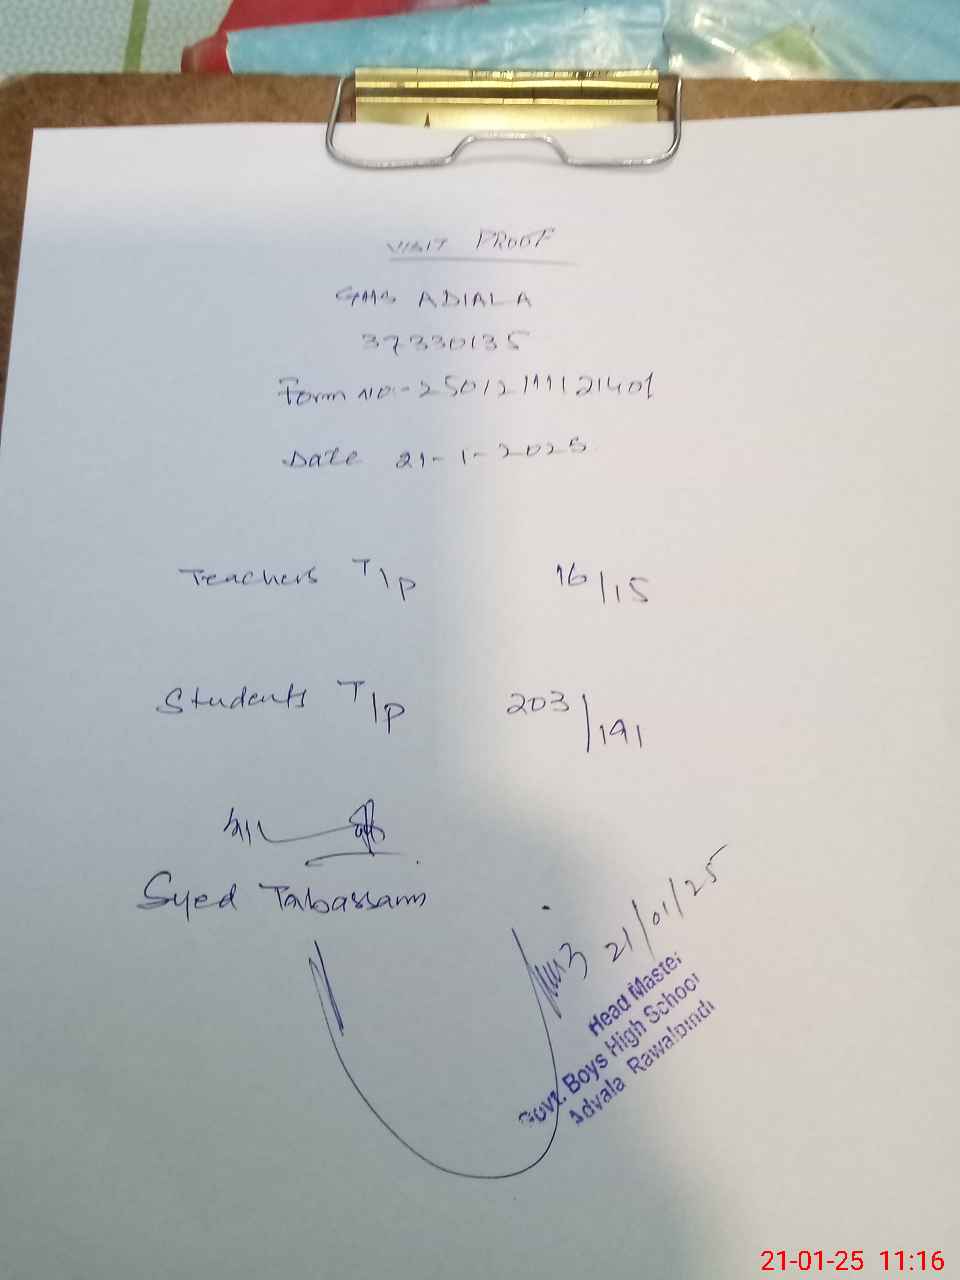 VISIT PROOF
GHS ADIALA
37330135
Form NO:- 25012111121401
Date 21-1-2025
Teachers T/P 16/15
Students T/P 203/191
Syed Tabassam
21/01/25
Head Master
Govt. Boys High School
Adyala Rawalpindi
21-01-25 11:16